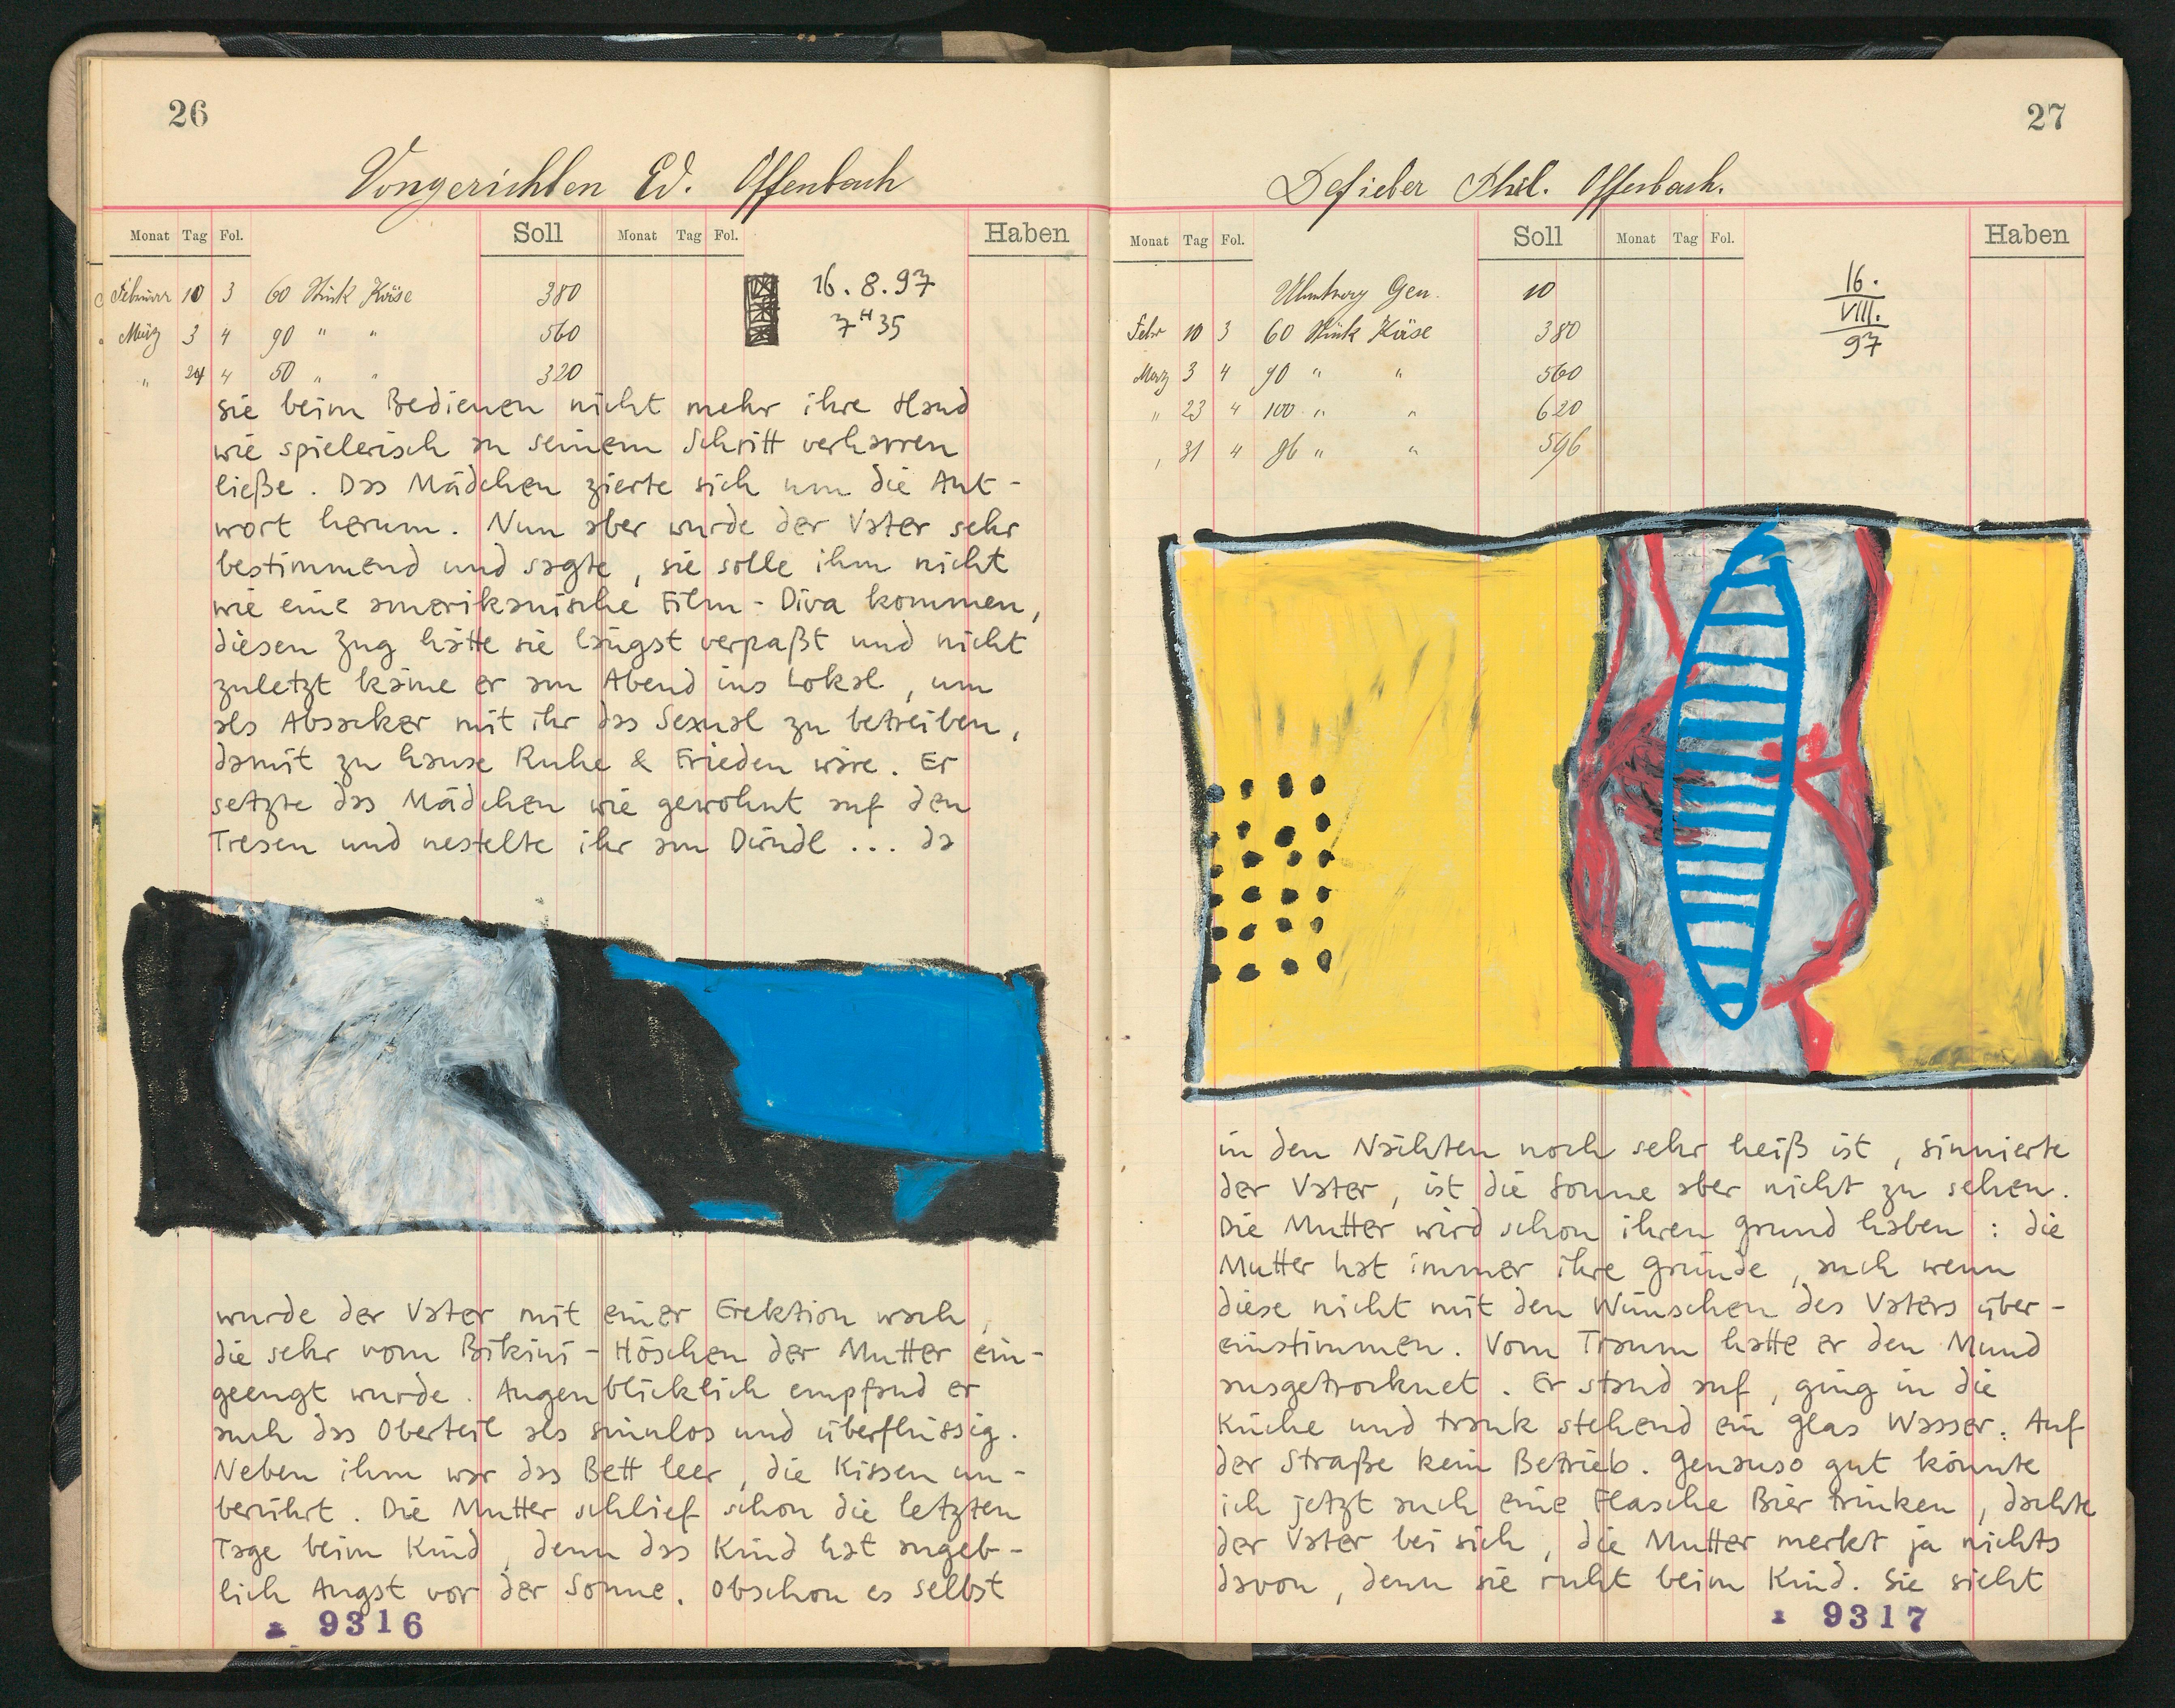 26
Vongerichten Ed. Offenbach
Monat Tag Fol. Soll Monat Tag Fol. Haben
Februar 10 3 60 Stück Käse 380
März 3 4 90 " " 560
" 24 4 50 " " 320
16.8.97
7H35
sie beim Bedienen nicht mehr ihre Hand
wie spielerisch an seinem Schritt verharren
ließe. Das Mädchen zierte sich um die Ant-
wort herum. Nun aber wurde der Vater sehr
bestimmend und sagte, sie solle ihm nicht
wie eine amerikanische Film-Diva kommen,
diesen Zug hätte sie längst verpaßt und nicht
zuletzt käme er am Abend ins Lokal, um
als Absacker mit ihr das Sexual zu betreiben,
damit zu hause Ruhe & Frieden wäre. Er
setzte das Mädchen wie gewohnt auf den
Tresen und nestelte ihr am Dirndl ... da
wurde der Vater mit einer Erektion wach,
die sehr vom Bikini-Höschen der Mutter ein-
geengt wurde. Augenblicklich empfand er
auch das Oberteil als sinnlos und überflüssig.
Neben ihm war das Bett leer, die Kissen un-
berührt. Die Mutter schlief schon die letzten
Tage beim Kind, denn das Kind hat angeb-
lich Angst vor der Sonne. Obschon es selbst
9316
27
Phil. Offenbach.
Monat Tag Fol. Soll Monat Tag Fol. Haben
Gen. 10
Febr 10 3 60 Stück Käse 380
März 3 4 90 " " 560
" 23 4 100 " " 620
" 31 4 96 " " 596
16.
VIII.
97
in den Nächten noch sehr heiß ist, sinnierte
der Vater, ist die Sonne aber nicht zu sehen.
Die Mutter wird schon ihren Grund haben: die
Mutter hat immer ihre Gründe, auch wenn
diese nicht mit den Wünschen des Vaters über-
einstimmen. Vom Traum hatte er den Mund
ausgetrocknet. Er stand auf, ging in die
Küche und trank stehend ein Glas Wasser. Auf
der Straße kein Betrieb. Genauso gut könnte
ich jetzt auch eine Flasche Bier trinken, dachte
der Vater bei sich, die Mutter merkt ja nichts
davon, denn sie ruht beim Kind. Sie sieht
9317